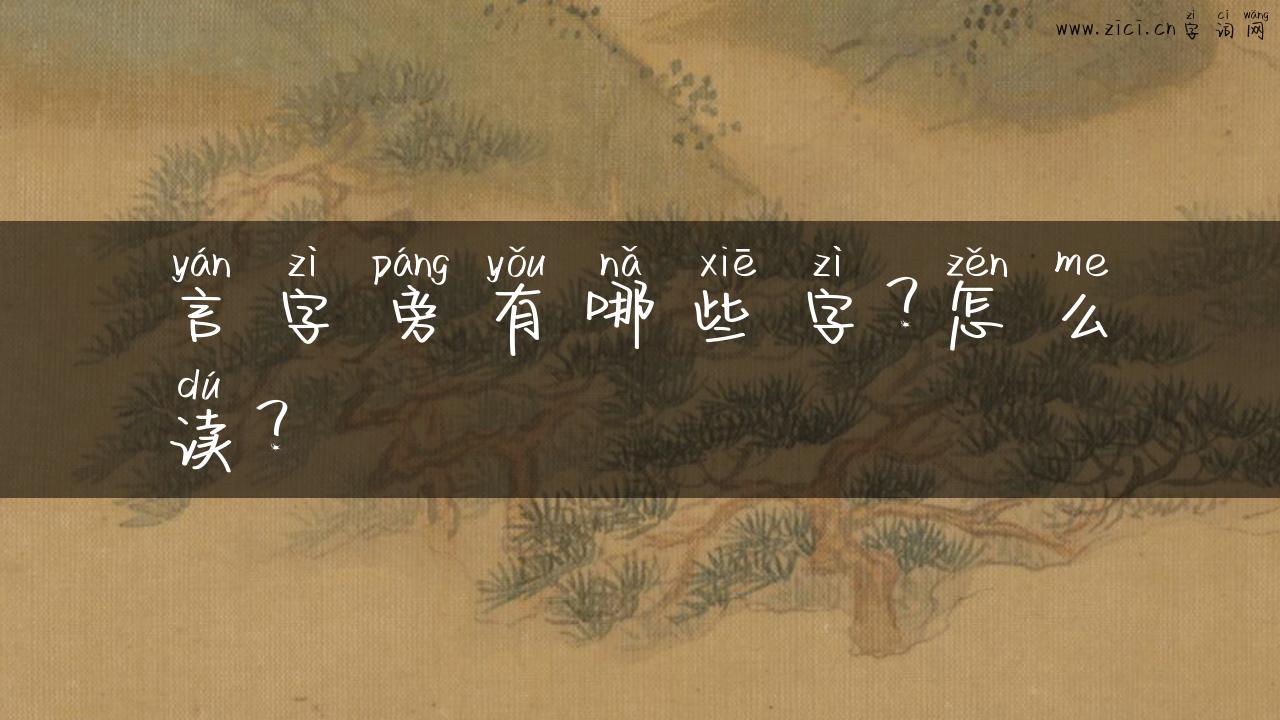 zì cí wǎng
www.zici.cn 字词网
yán zì páng yǒu nǎ xiē zì zěn me
言字旁有哪些字？怎么
dú
读？